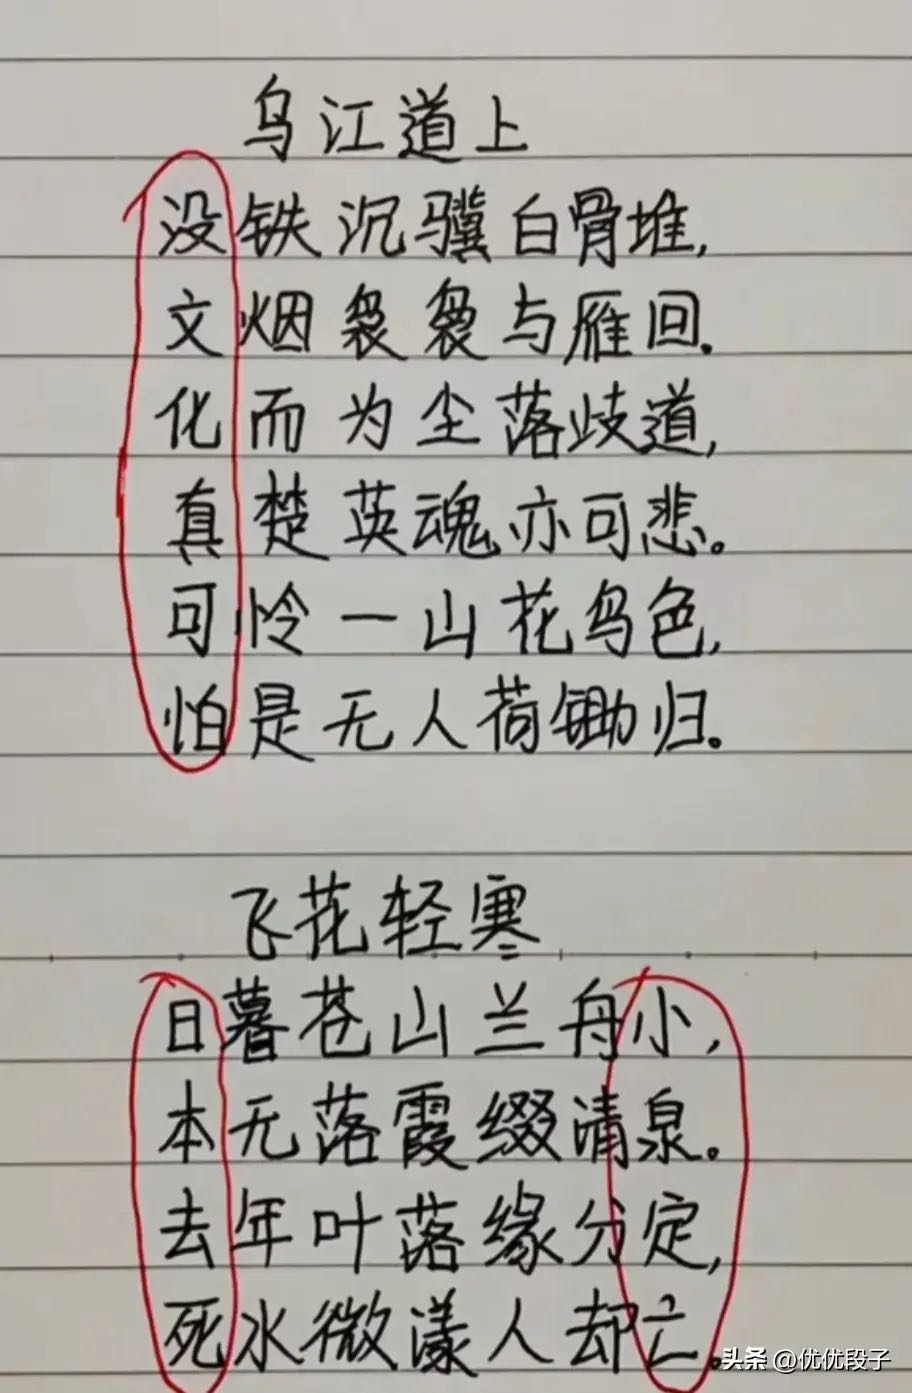 乌江道上
没铁沉骥白骨堆,
文烟袅袅与雁回.
化而为尘落歧道,
真楚英魂亦可悲。
可怜一山花鸟色,
怕是无人荷锄归。
飞花轻寒
日暮苍山兰舟小,
本无落霞缀清泉。
去年叶落缘分定,
死水微漾人却亡。
头条 @优优段子